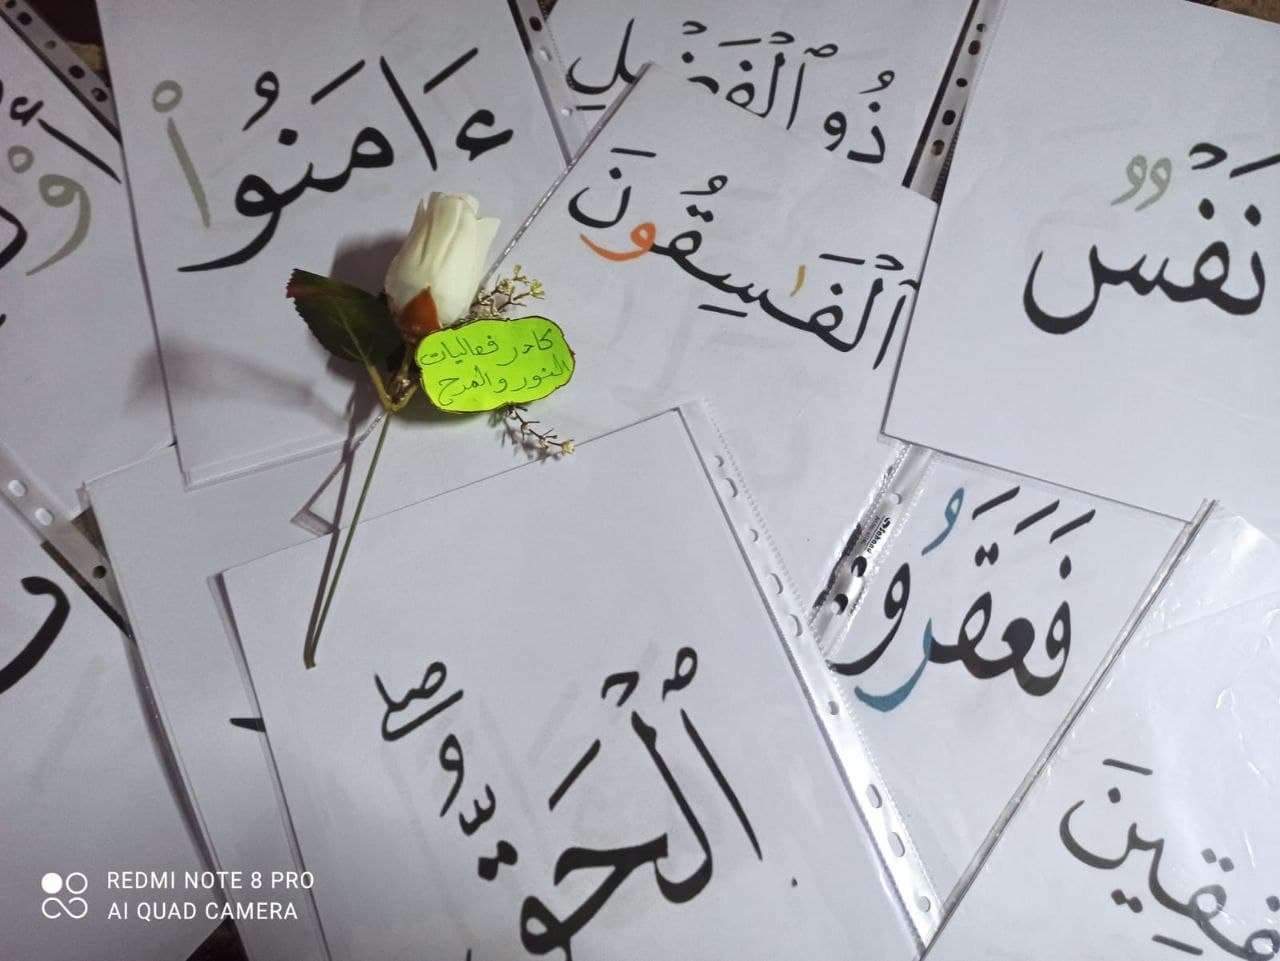 ءَامَنُواْ
ذُو ٱلْفَضْلِ
ٱلْفَـٰسِقُونَ
نَفْسٌ
كادر فعاليات
النور والمرح
فَعَقَرُو
ٱلْحَقُّ ۖ
فِقِينَ
REDMI NOTE 8 PRO
AI QUAD CAMERA